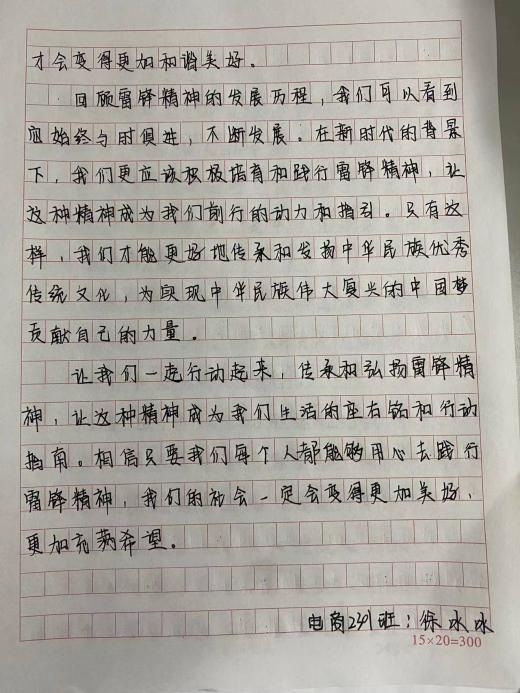 才会变得更加和谐美好。
回顾雷锋精神的发展历程，我们可以看到
它始终与时俱进，不断发展。在新时代的背景
下，我们更应该积极培育和践行雷锋精神，让
这种精神成为我们前行的动力和指引。只有这
样，我们才能更好地传承和发扬中华民族优秀
传统文化，为实现中华民族伟大复兴的中国梦
贡献自己的力量。
让我们一起行动起来，传承和弘扬雷锋精
神，让这种精神成为我们生活的座右铭和行动
指南。相信只要我们每个人都能够用心去践行
雷锋精神，我们的社会一定会变得更加美好，
更加充满希望。
电商231班：徐冰冰
15×20=300